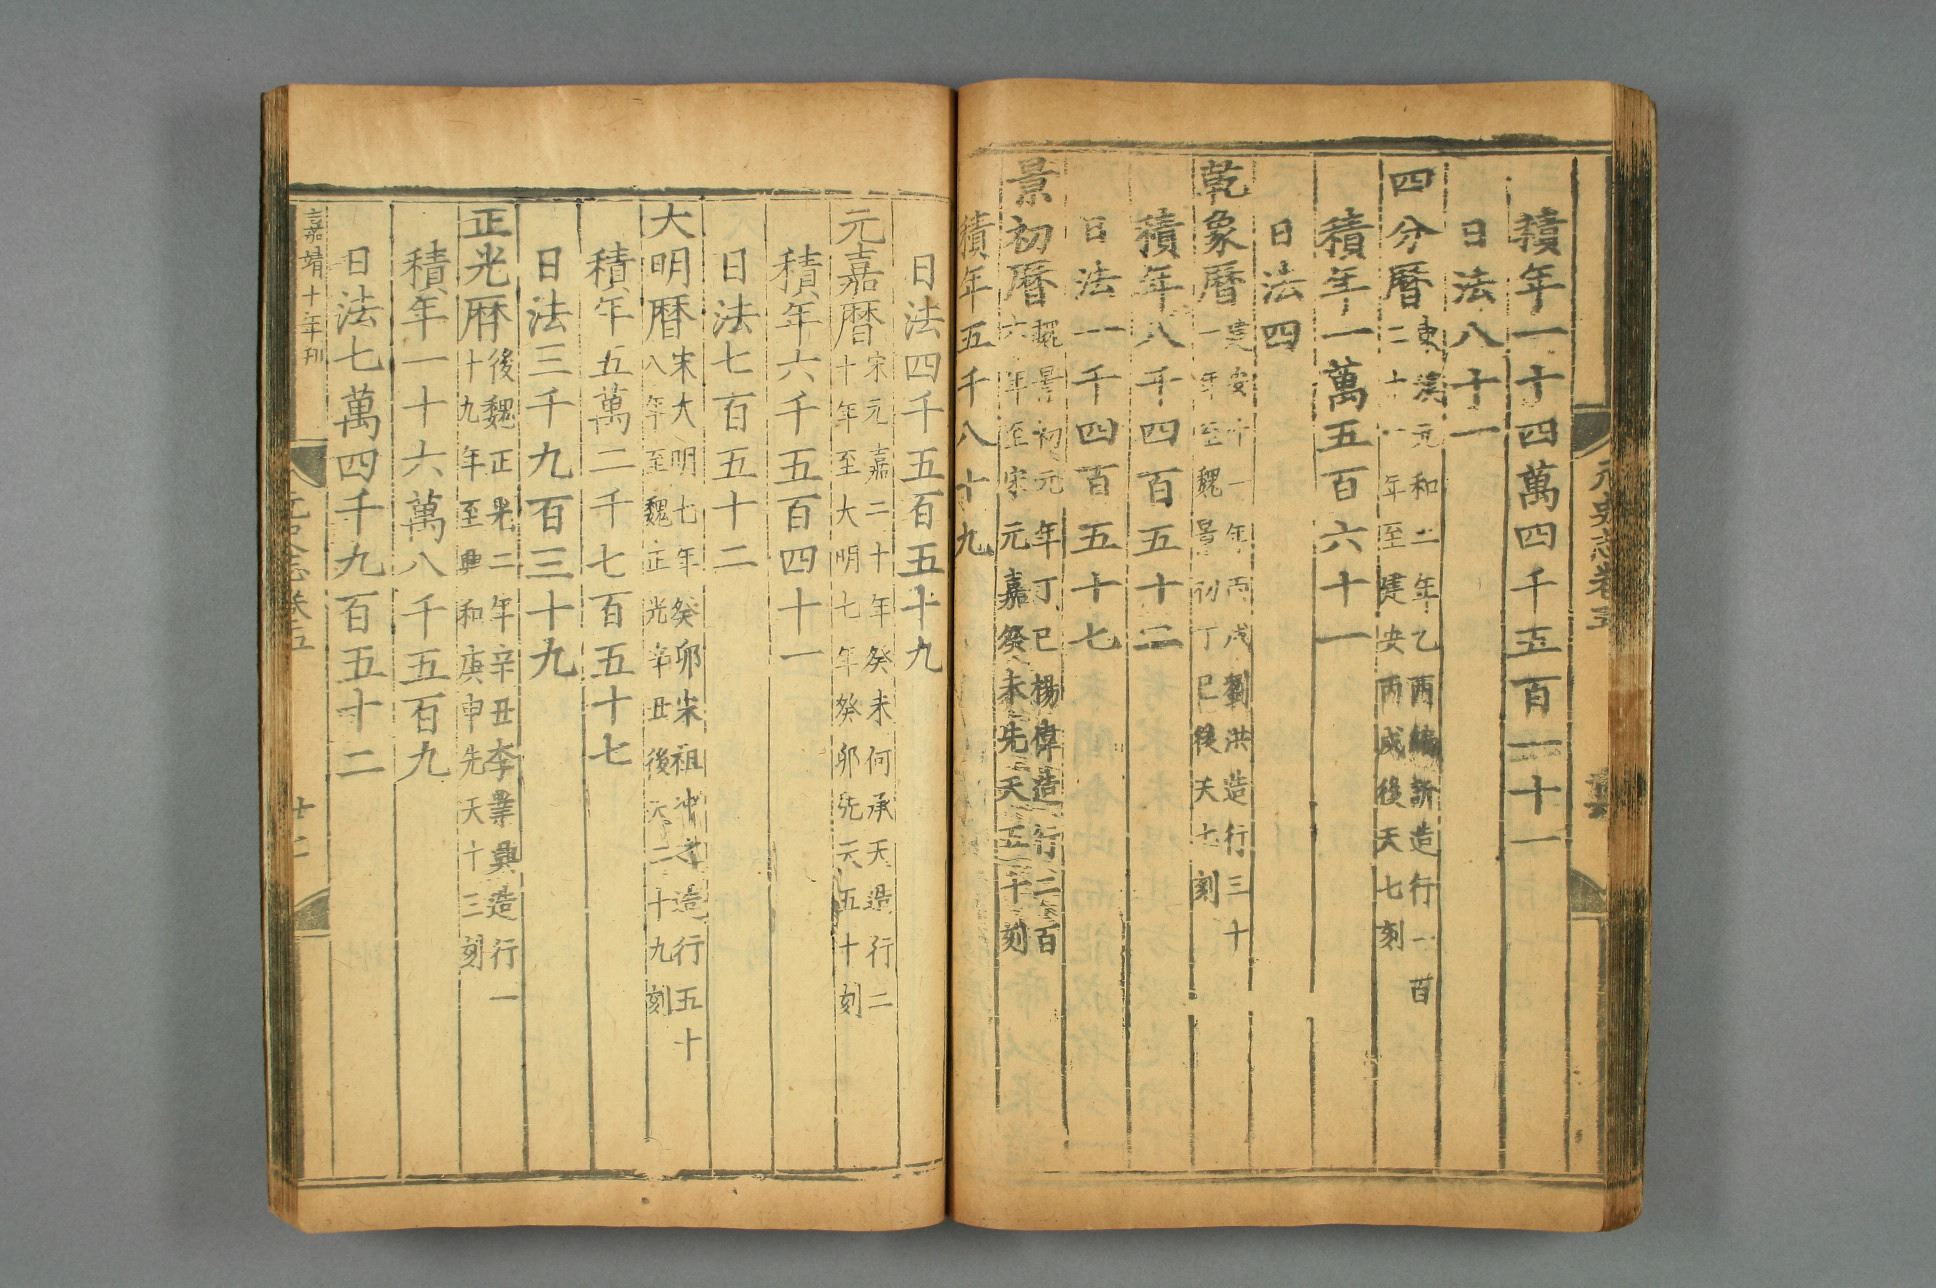 積年一十四萬四千五百一十一
日法八十一
四分曆東漢元和二年乙酉編訢造行一百
二十一年至建安丙戌後天七刻
積年一萬五百六十一
日法四
乾象曆建安十一年丙戌劉洪造行三十
一年至魏景初丁巳後天七刻
積年八千四百五十二
日法一千四百五十七
景初曆魏景初元年丁巳楊偉造行二百
六年至宋元嘉癸未先天五十刻
積年五千八十九
元史志卷五
日法四千五百五十九
元嘉曆宋元嘉二十年癸未何承天造行二
十年至大明七年癸卯先天五十刻
積年六千五百四十一
日法七百五十二
大明曆宋大明七年癸卯宋祖冲之造行五十
八年至魏正光辛丑後天二十九刻
積年五萬二千七百五十七
日法三千九百三十九
正光曆後魏正光二年辛丑李業興造行一
十九年至興和庚申先天十三刻
積年一十六萬八千五百九
日法七萬四千九百五十二
嘉靖十年刊
元史志卷五
廿二